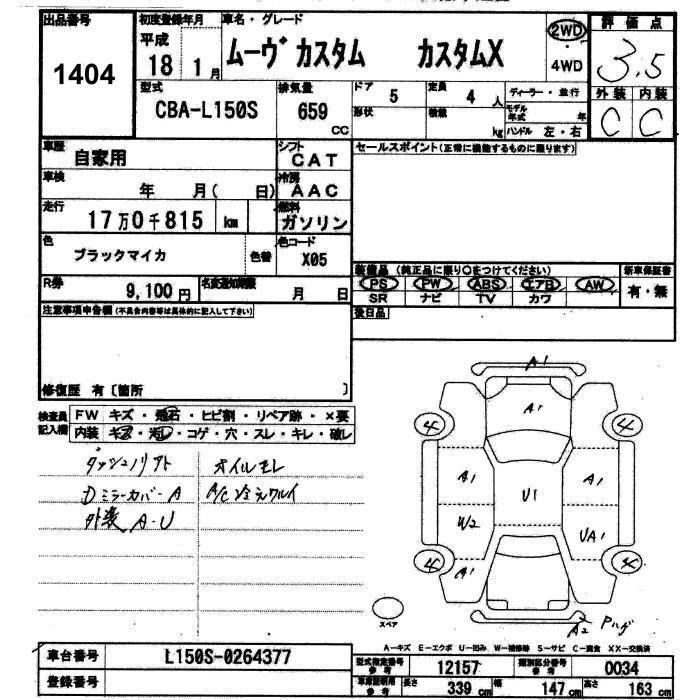 出品番号
1404
初度登録年月
平成
18 1月
車名・グレード
ムーヴカスタム カスタムX
2WD
・
4WD
評価点
3.5
外装 内装
C C
型式
CBA-L150S
排気量
659
cc
ドア
5
定員
4 人
形状
積載
kg
ディーラー・並行
モデル年式 年
ハンドル 左・右
車歴
自家用
シフト
CAT
車検
年 月( 日)
冷房
AAC
走行
17万0千815 km
燃料
ガソリン
色
ブラックマイカ
色替
色コード
X05
R券
9,100円
名変通知期限
月 日
セールスポイント(正常に機能するものに限ります)
装備品 (純正品に限り○をつけてください)
新車保証書
PS PW ABS エアB AW
有・無
SR ナビ TV カワ
後日品
注意事項申告欄(不具合内容等は具体的に記入して下さい)
修復歴 有〔箇所 〕
検査員記入欄
FW キズ・飛石・ヒビ割・リペア跡・×要
内装 キズ・汚レ・コゲ・穴・スレ・キレ・破レ
ダッシュノリアト
Dミラーカバー A
外装 A・U
オイルモレ
A/C冷えワルイ
A1
A1
4 4
A1 A1
U1
W2 UA1
4 4
A1
スペア
A2 Pハゲ
A-キズ E-エクボ U-凹み W-補修跡 S-サビ C-腐食 XX-交換済
車台番号
L150S-0264377
登録番号
型式指定番号 参考
12157
類別区分番号 参考
0034
車庫証明用 参考
長さ 339 cm
幅 147 cm
高さ 163 cm